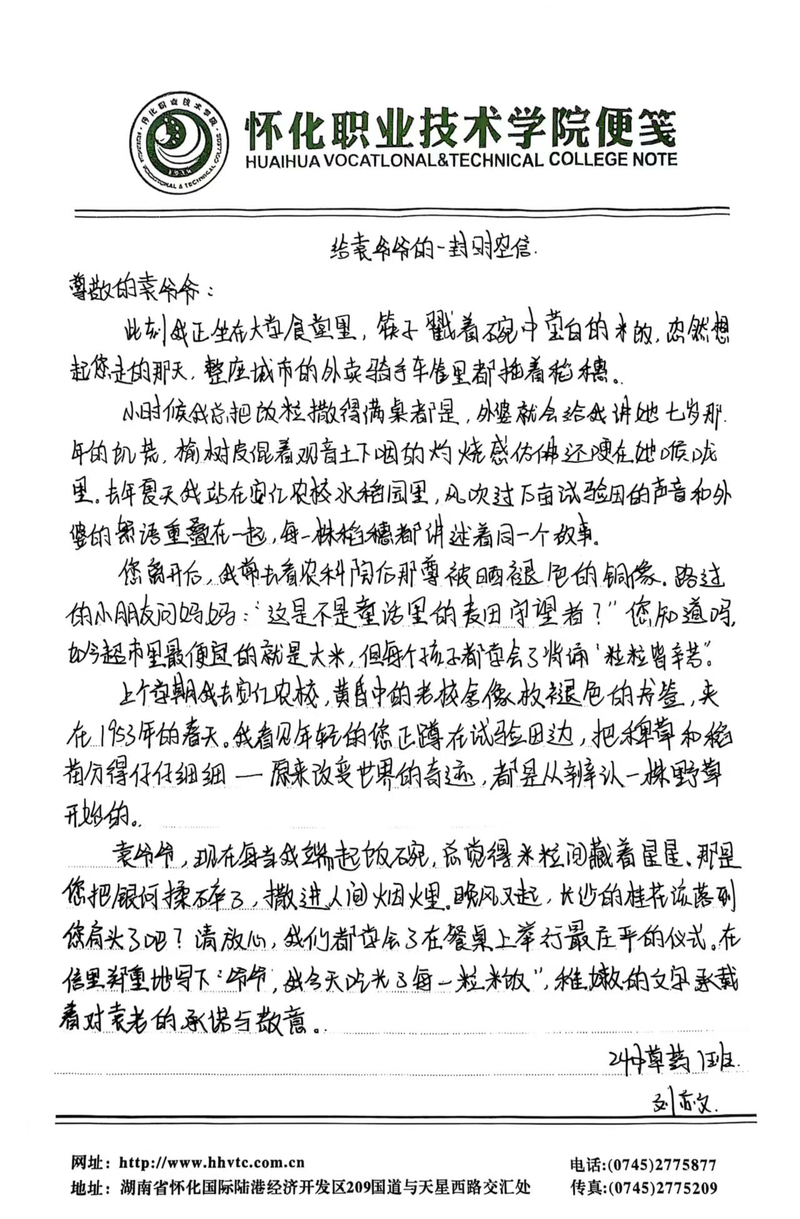 怀化职业技术学院便笺
HUAIHUA VOCATLONAL&TECHNICAL COLLEGE NOTE
给袁爷爷的一封时空信.
尊敬的袁爷爷：
此刻我正坐在大学食堂里，筷子戳着碗中莹白的米饭，忽然想
起您走的那天，整座城市的外卖骑手车筐里都插着稻穗。
小时候我总把饭粒撒得满桌都是，外婆就会给我讲她七岁那
年的饥荒，榆树皮混着观音土下咽的灼烧感仿佛还哽在她喉咙
里。去年夏天我站在安江农校水稻园里，风吹过万亩试验田的声音和外
婆的絮语重叠在一起，每一株稻穗都讲述着同一个故事。
您离开后，我常去看农科院后那尊被晒褪色的铜像。路过
的小朋友问妈妈："这是不是童话里的麦田守望者？"您知道吗，
如今超市里最便宜的就是大米，但每个孩子都学会了背诵"粒粒皆辛苦"。
上个学期我去安江农校，黄昏中的老校舍像枚褪色的书签，夹
在1953年的春天。我看见年轻的您正蹲在试验田边，把稗草和稻
苗分得仔仔细细——原来改变世界的奇迹，都是从辨认一株野草
开始的。
袁爷爷，现在每当我端起饭碗，总觉得米粒间藏着星星。那是
您把银河揉碎了，撒进人间烟火里。晚风又起，长沙的桂花该落到
您肩头了吧？请放心，我们都学会了在餐桌上举行最庄严的仪式。在
信里郑重地写下"爷爷，我今天吃光了每一粒米饭"，稚嫩的文字承载
着对袁老的承诺与敬意。
24中草药1班.
刘苏文.
网址：http://www.hhvtc.com.cn
电话:(0745)2775877
地址：湖南省怀化国际陆港经济开发区209国道与天星西路交汇处
传真:(0745)2775209